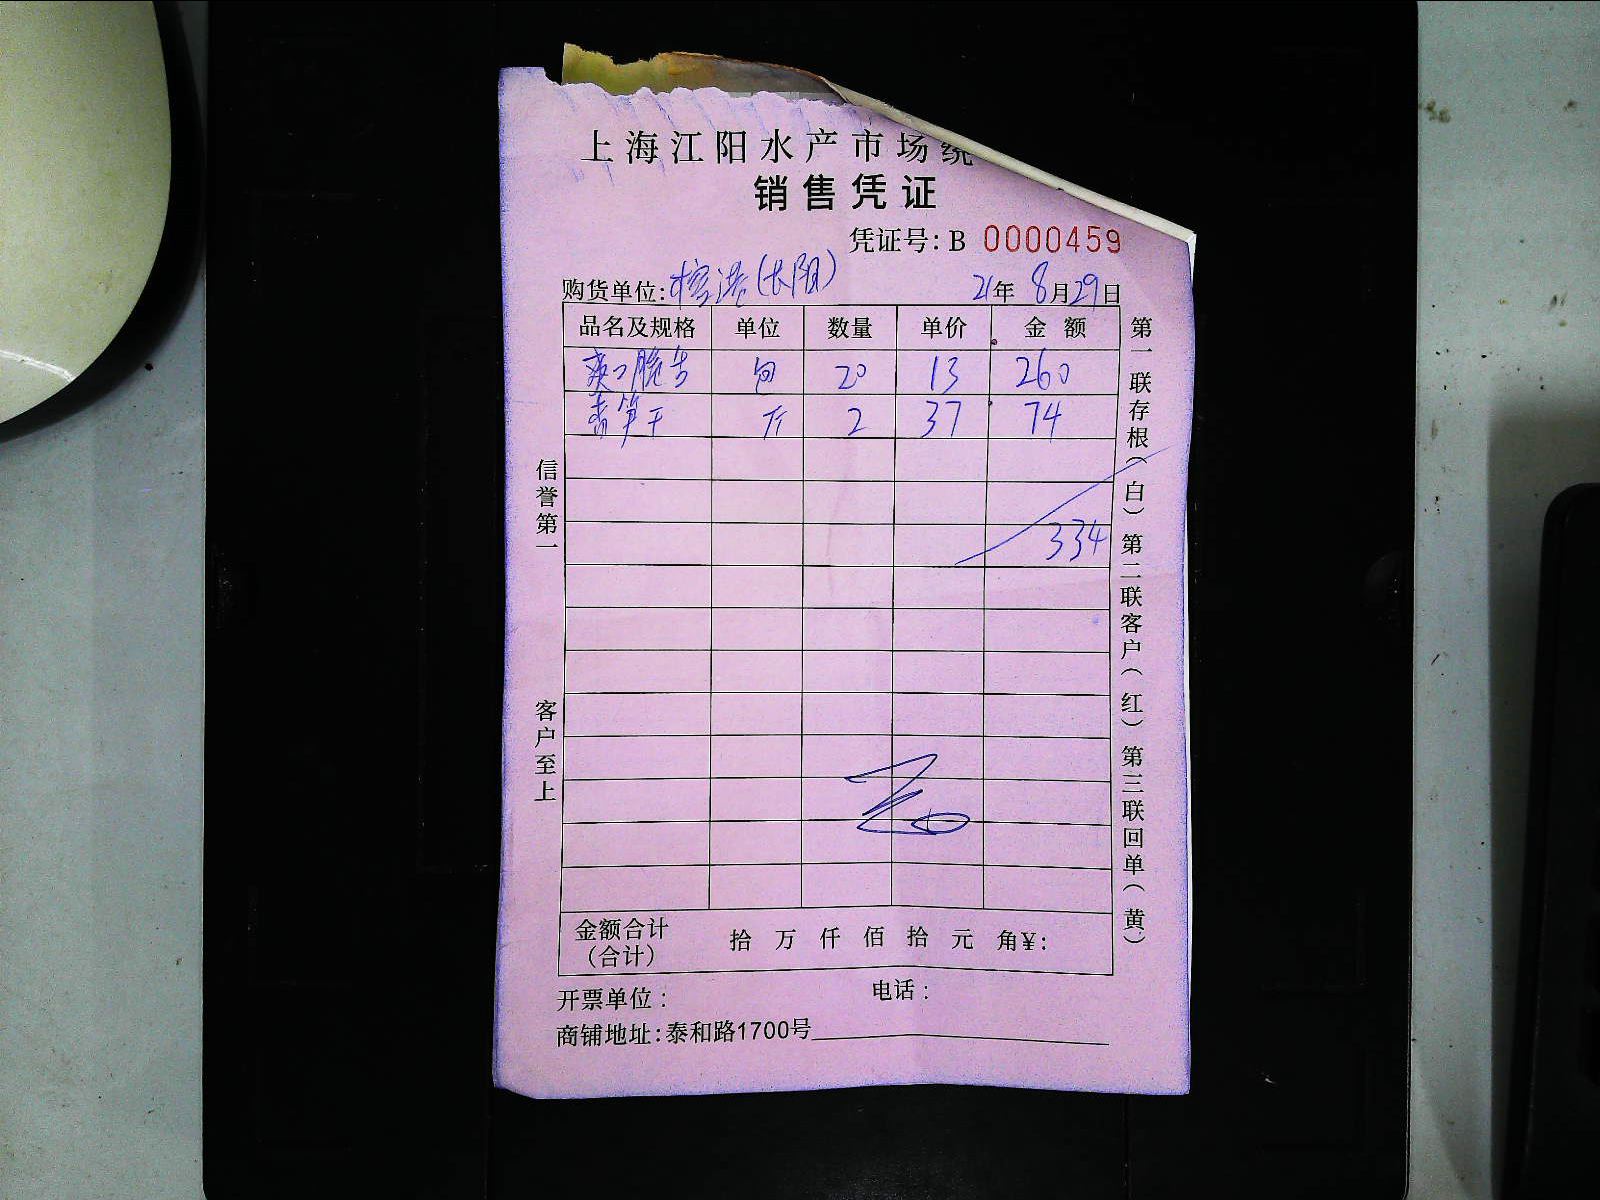 上海江阳水产市场统
销售凭证
凭证号: B 0000459
购货单位: 港(长阳) 21年 8月29日
品名及规格 单位 数量 单价 金额
爽口脆 20 13 260
笋干 斤 2 37 74
334
金额合计 拾 万 仟 佰 拾 元 角¥:
(合计)
开票单位: 电话:
商铺地址: 泰和路1700号
信誉第一 客户至上
第一联存根(白) 第二联客户(红) 第三联回单(黄)